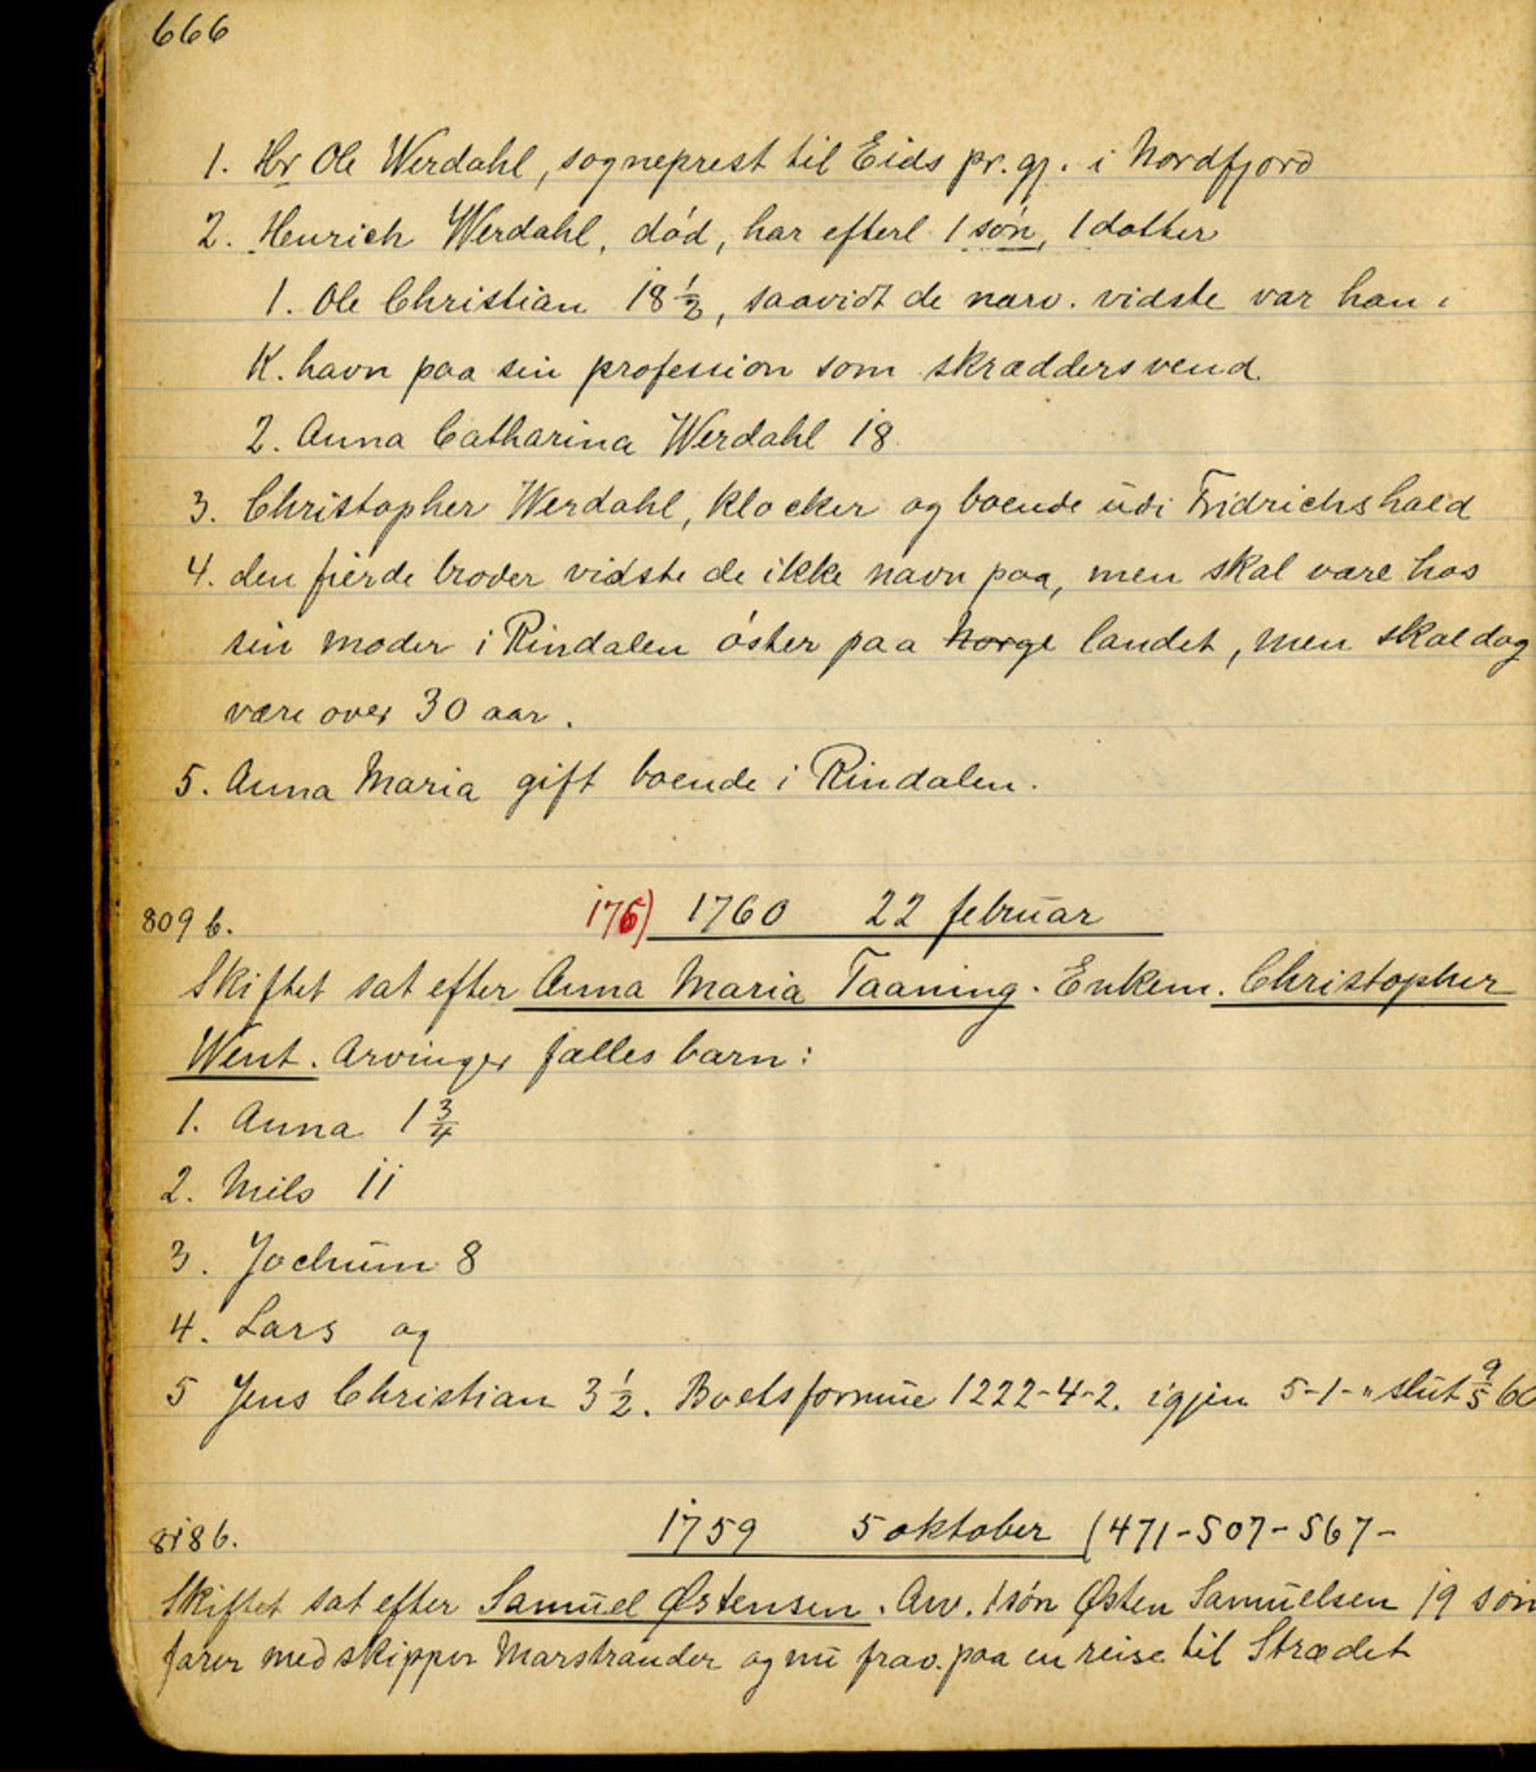 666
1. Hr Ole Werdahl, sogneprest til Eids pr.gj. i Nordfjord
2. Henrich Werdahl, död, har efterl. 1 søn, 1 datter
1. Ole Christian 18½, saavidt de narv. vidste var han i
K.havn paa sin profession som skræddersvend.
2. Anna Catharina Werdahl 18
3. Christopher Werdahl, klocker og boende udi Fridrichshald
4. den fierde broder vidste de ikke navn paa, men skal være hos
sin moder i Rindalen öster paa Norge landet, men skal dog
være over 30 aar.
5. Anna Maria gift boende i Rindalen.
809 b. 176) 1760 22 februar
Skiftet sat efter Anna Maria Taaning. Enkem. Christopher
Went. Arvinger fælles barn:
1. Anna 1¾
2. Nils 11
3. Jochum 8
4. Lars og
5 Jens Christian 3½. Boets formue 1222-4-2. igjen 5-1-" slut 9/5 60
818 b. 1759 5 oktober (471-507-567-
Skiftet sat efter Samuel Østensen. Arv. 1 sön Østen Samuelsen 19 som
farer med skipper Marstrander og nu frav. paa en reise til Strædet